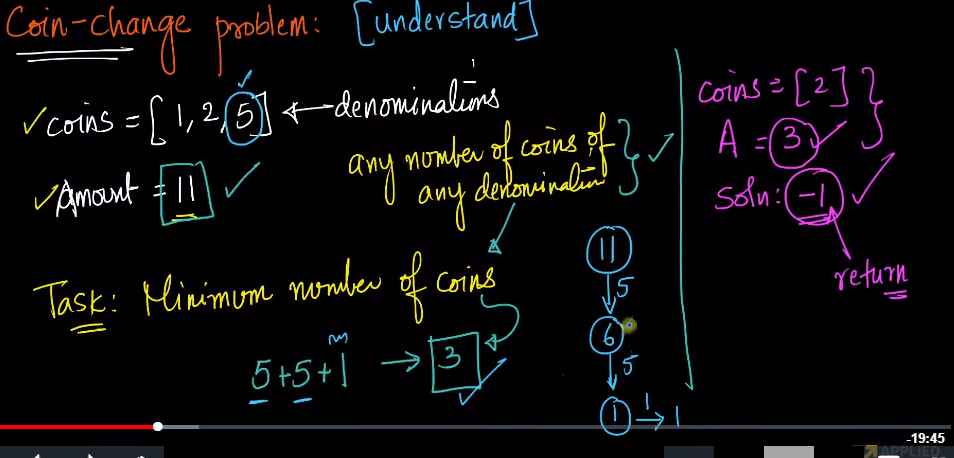 Coin-change problem: [understand]
coins = [1, 2, 5] ← denominations
1
any number of coins of
any denomination
Amount = 11
Task: Minimum number of coins
5+5+1 → 3
11
5
6
5
1 1→ 1
coins = [2]
A = 3
Soln: -1
return
-19:45
APPLIED